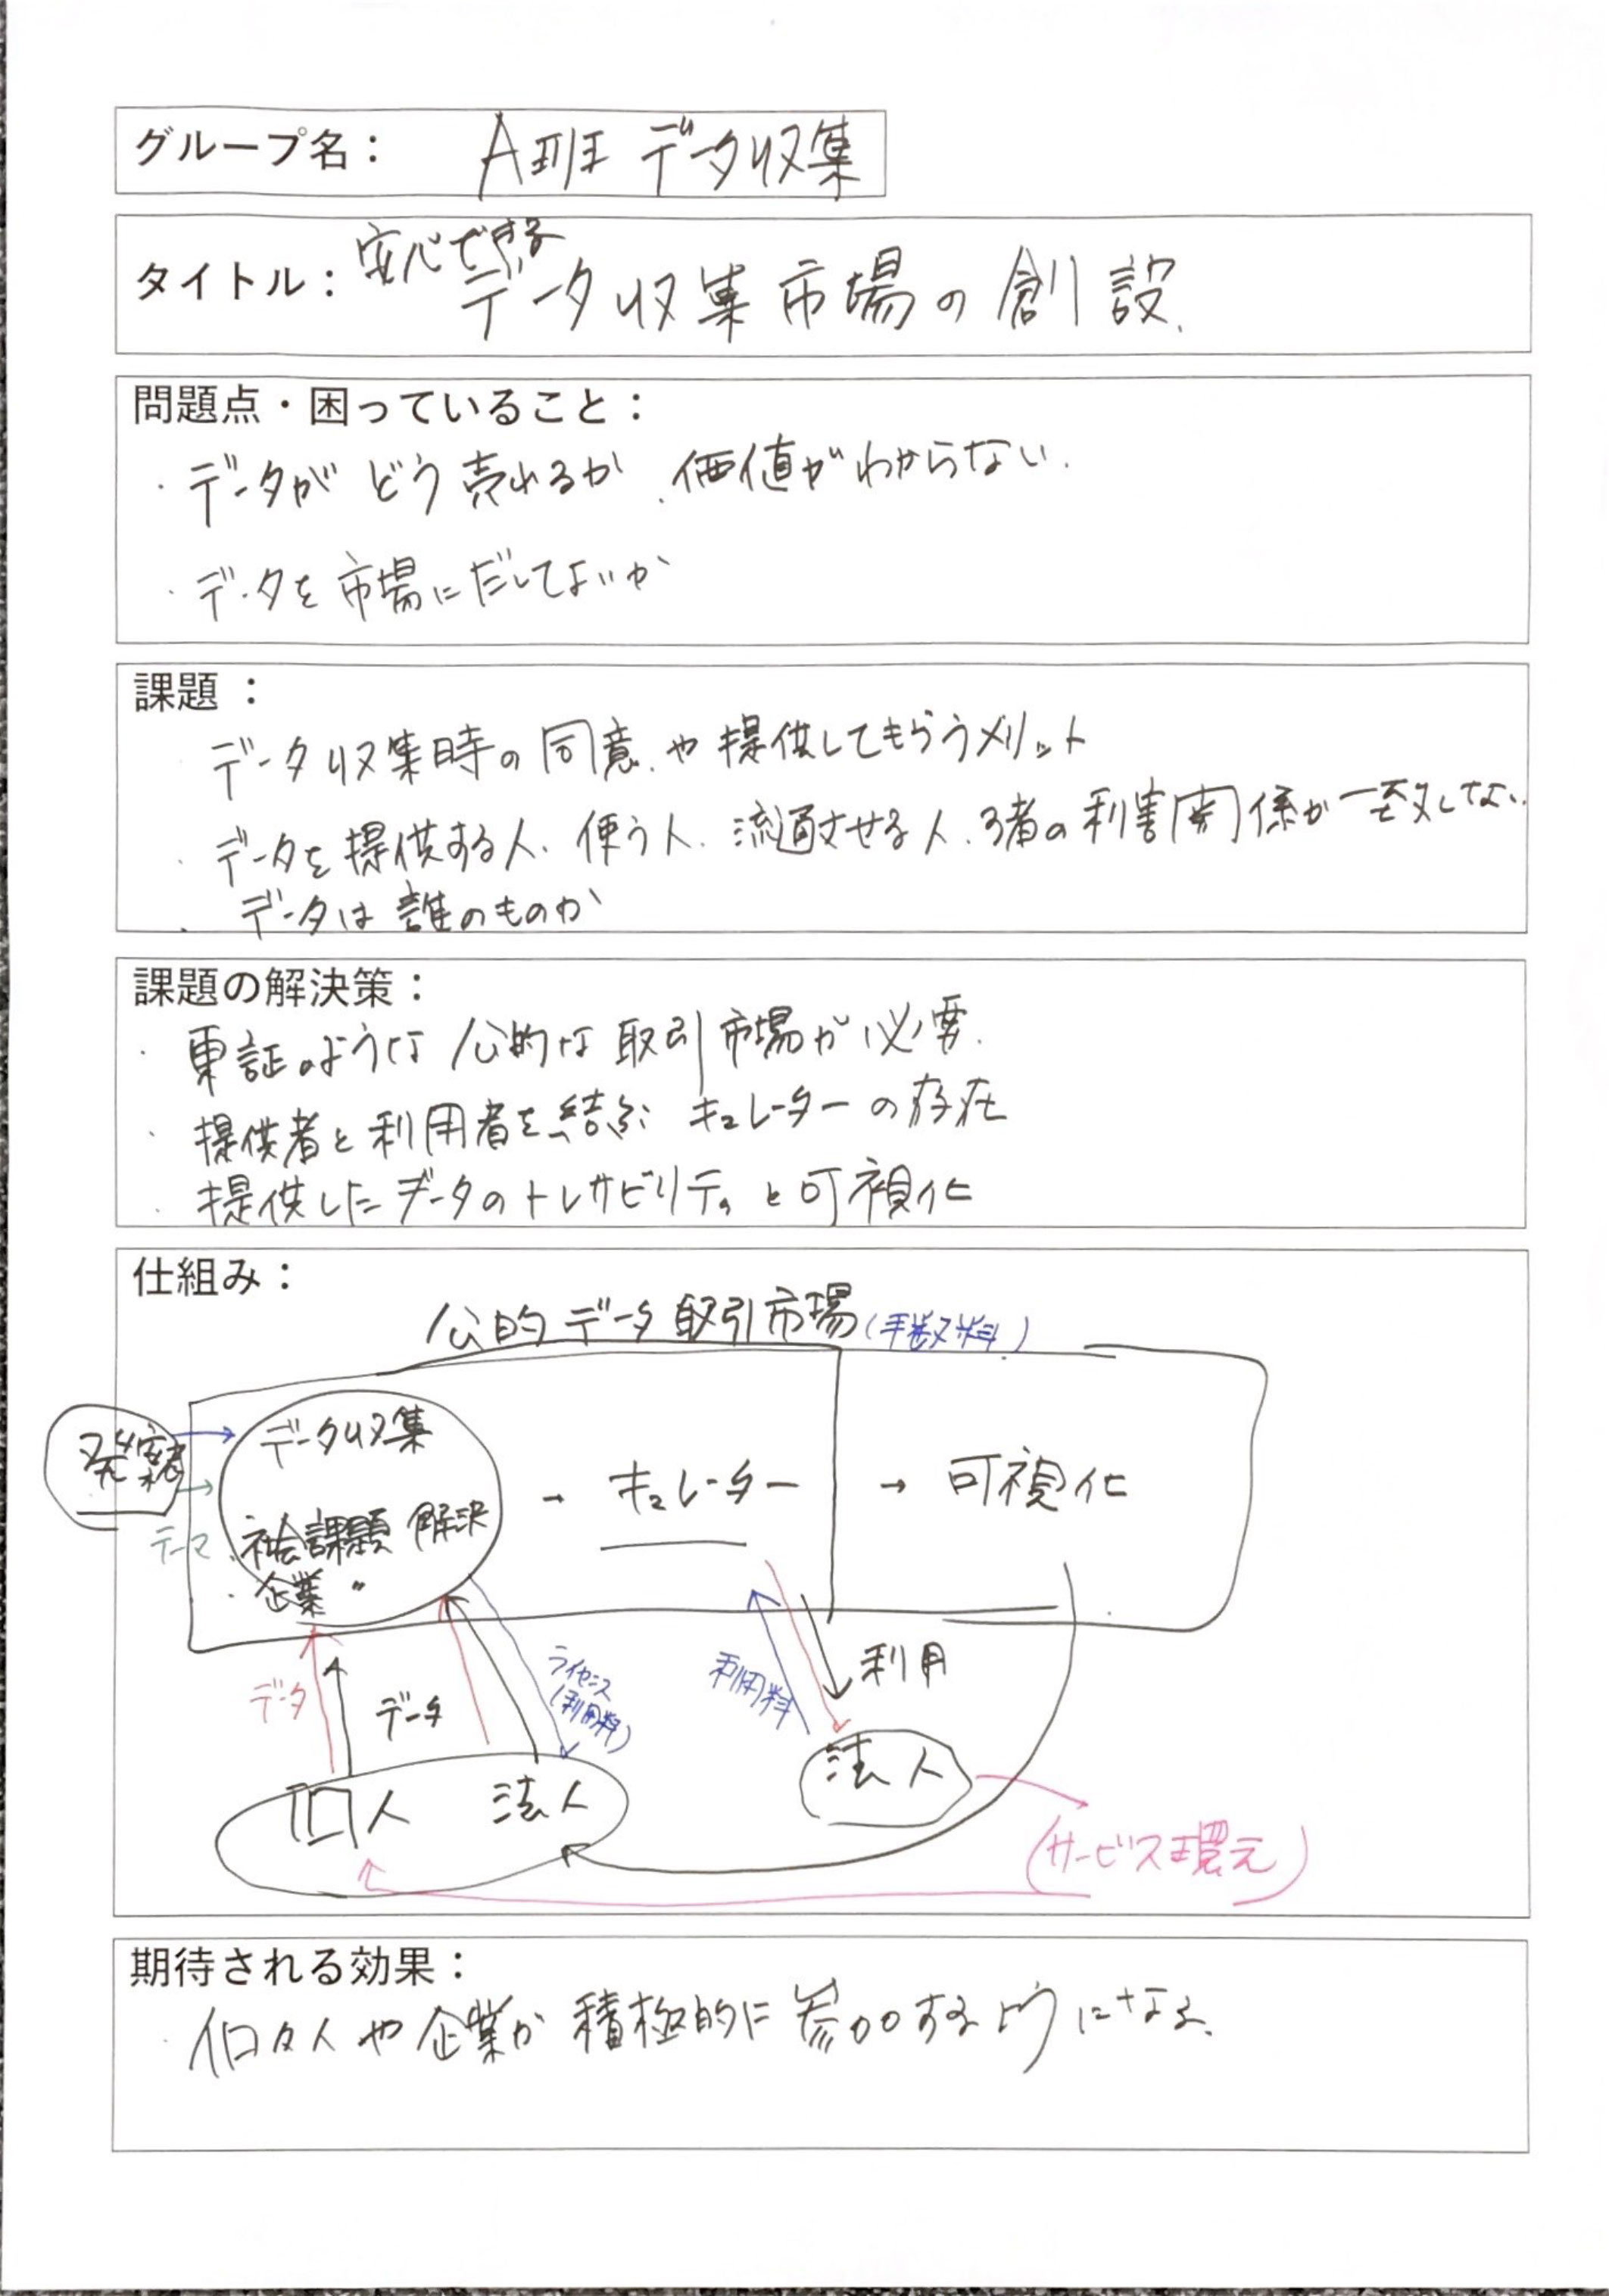 グループ名： A班 データ収集
タイトル： 安心できる
データ収集市場の創設.
問題点・困っていること：
・データが どう売れるか、価値がわからない.
・データを市場にだしてよいか
課題：
・データ収集時の同意や提供してもらうメリット
・データを提供する人、使う人、流通させる人、3者の利害関係が一致しない.
・データは誰のものか
課題の解決策：
・東証のように公的な取引市場が必要.
・提供者と利用者を結ぶ キュレーターの存在
・提供したデータのトレサビリティと可視化
仕組み：
公的データ取引市場(手数料)
発案者
データ収集
テーマ
・社会課題 解決
・企業 〃
→ キュレーター
→ 可視化
データ
データ
ライセンス
(利用料)
利用料
利用
個人 法人
法人
(サービス還元)
期待される効果：
・個々人や企業が積極的に参加するようになる.